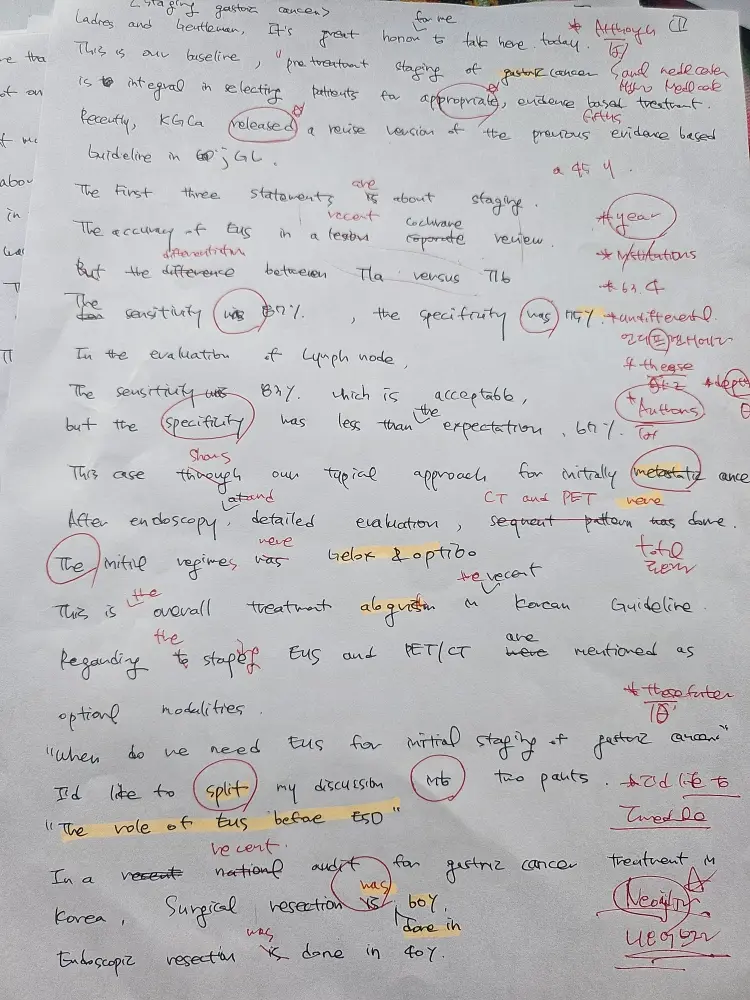 (staging gastric cancer)
for me
Ladies and Gentlemen, It's great honor to talk here today.
* Although
This is our baseline, "pretreatment staging of gastric cancer
is integral in selecting patients for appropriate, evidence based treatment.
Recently, KGCa released a revise version of the previous evidence based
Guideline in GL.
a 45 y.
are
The first three statements is about staging.
* year
recent Cochrane
The accuracy of EUS in a review.
* Institutions
But the difference between T1a versus T1b
* 63
The sensitivity was 87%. , the specificity was 75%.
* undifferential
In the evaluation of Lymph node,
The sensitivity was 83%. which is acceptable,
* depth
* Authors
the
but the specificity was less than expectation, 67%.
Shows
This case through our typical approach for initially metastatic cance
and CT and PET were
After endoscopy, detailed evaluation, sequent pattern was done.
were
The initial regimes was Gelox & optibo
total
the the recent
This is overall treatment algorithm in Korean Guideline.
the are
Regarding to staging EUS and PET/CT were mentioned as
optional modalities.
"When do we need EUS for initial staging of gastric cancer"
I'd like to split my discussion into two parts.
* I'd like to
"The role of EUS before ESD"
recent
In a recent national audit for gastric cancer treatment in
was
Korea, Surgical resection is 60%.
done in
was
Endoscopic resection is done in 40%.